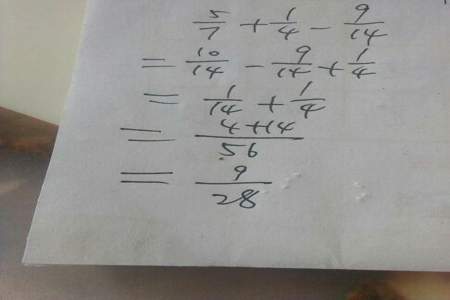 5/7 + 1/4 - 9/14
= 10/14 - 9/14 + 1/4
= 1/14 + 1/4
= 4+14/56
= 9/28